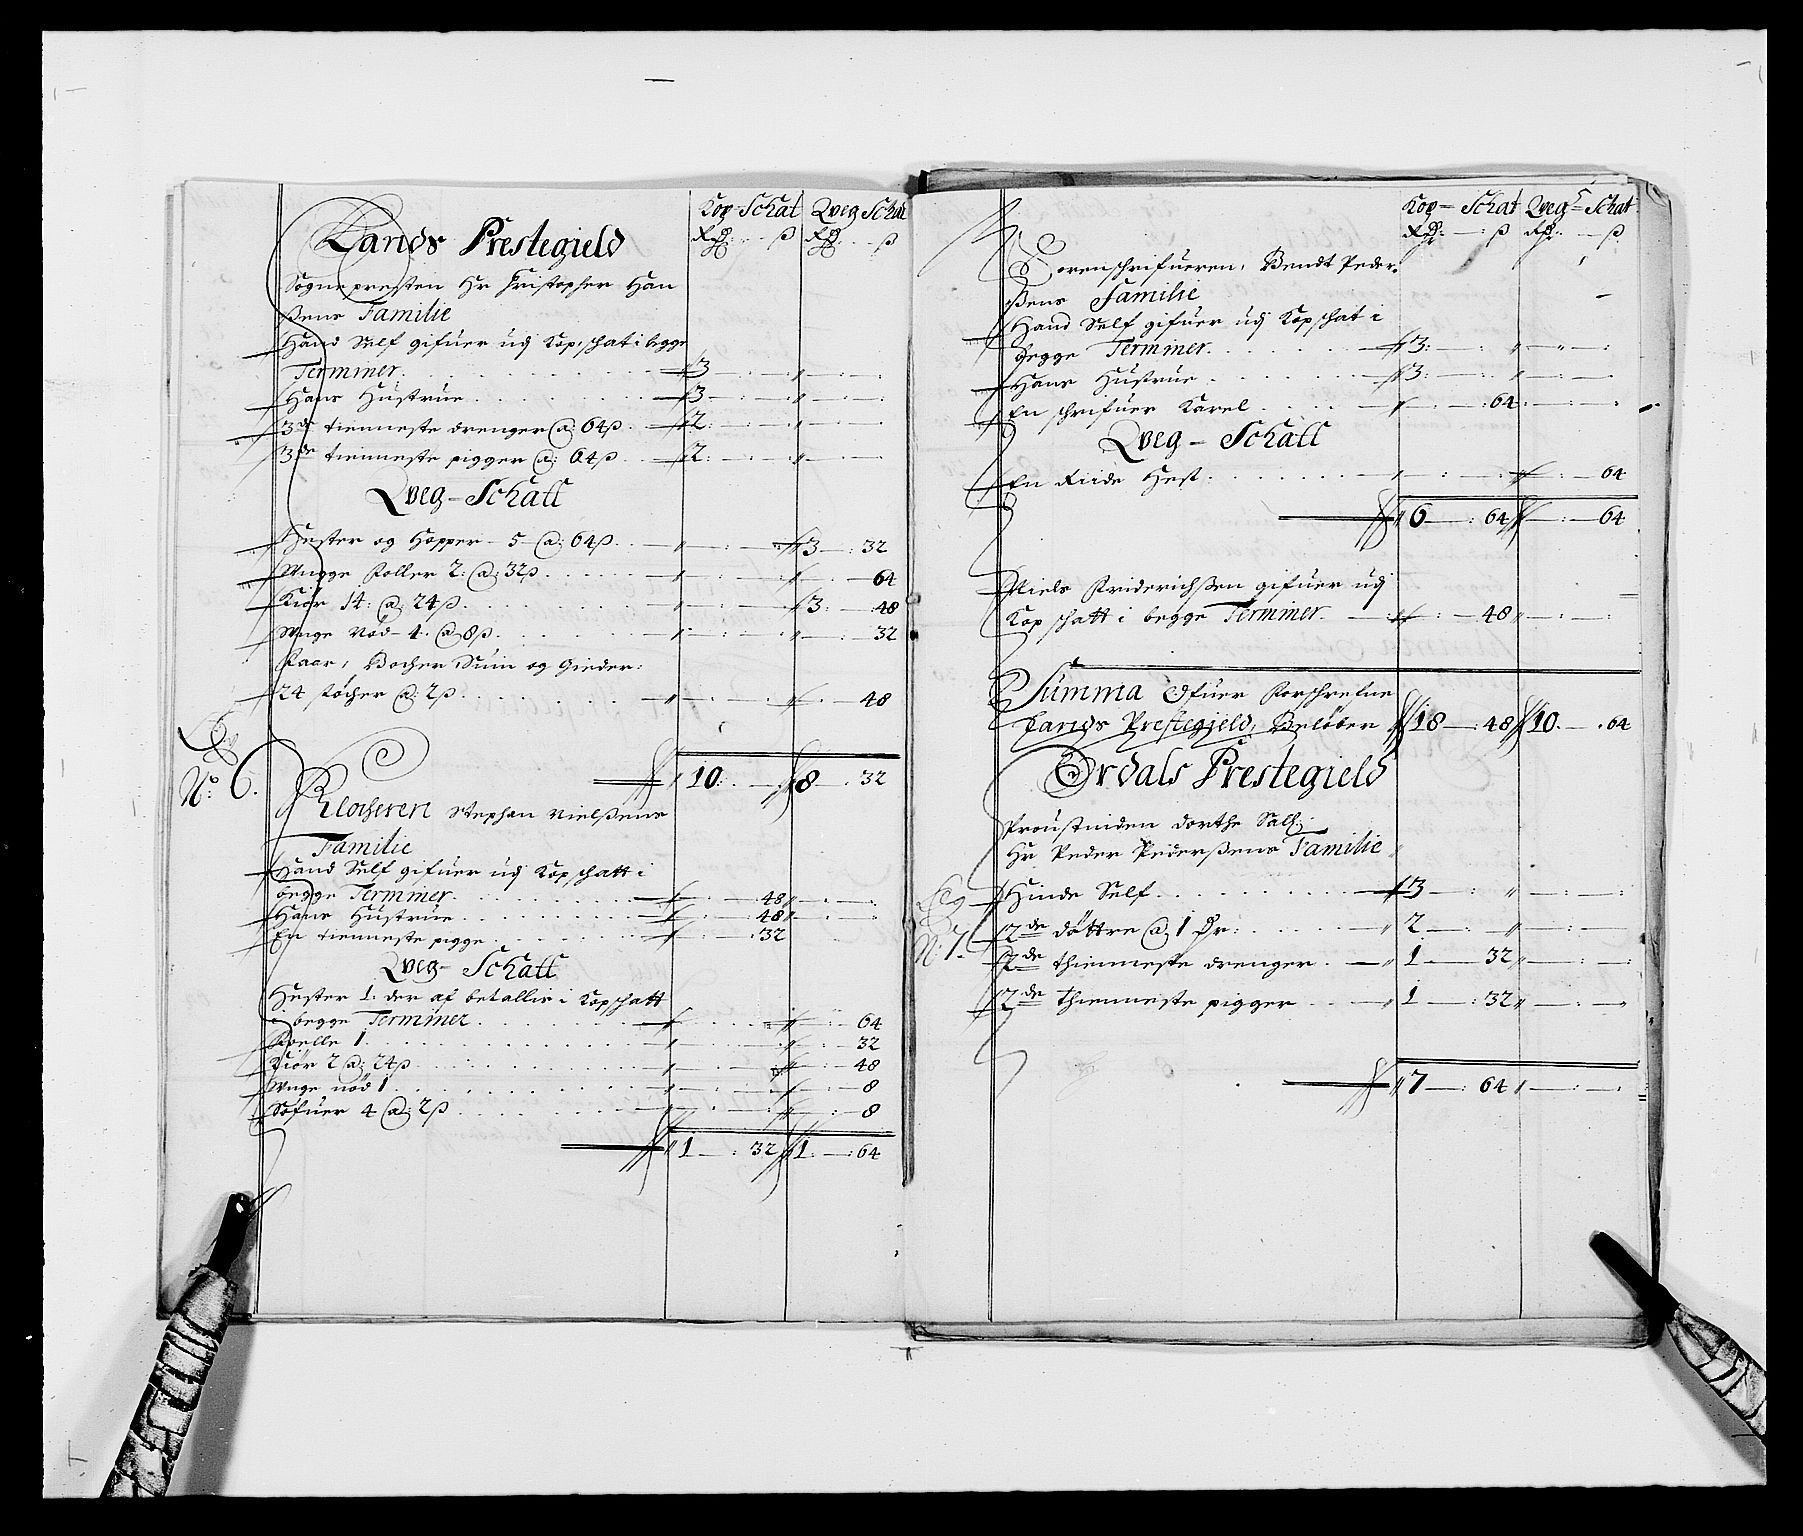 Kop-Schat Qveg Schat
Rdr: ß Rdr: ß
Lands Prestegield
Sognepresten Hr Christopher Han
ßens Familie
Hand Self gifuer udj Kopschat i begge
Terminer. 3
Hans Hustrue 3
3de tienneste drenger @ 64 ß 2
3de tienneste pigger @: 64 ß 2
Qveg-Schatt
Hester og Hopper - 5 - @: 64 ß. 3 : 32
Unge Foller 2: @: 32 ß 64
Kiør 14: @: 24 ß. 3 48
Unge Nød - 4: @ 8 ß. 32
Faar, Bocher, Suin og Gieder:
24 støcher @: 2 ß 48
10: 8 . 32
No: 6.
Klocheren Stephan Nielßens
Familie
Hand Self gifuer udj Kopschatt i
begge Terminer. 48
Hans Hustrue 48
En tienneste pigge 32
Qveg-Schatt
Hester 1: der af betallis i Kopschatt
i begge Terminer 64
Foelle 1. 32
Kiør 2 @: 24 ß 48
Unge nød 1 8
Søfuer 4 @: 2 ß 8
1 : 32 1 : 64
Kop-Schat Qveg-Schat
Rdr: ß Rdr: ß
Sorenschrifueren, Bendt Peder-
ßens Familie
Hand Self gifuer udj Kopschat i
begge Terminer. 3:
Hans Hustrue 3:
En schrifuer Karel 64
Qveg-Schatt
En Riide Hest 64
6 : 64 : 64
Niels Friderichßen gifuer udj
Kopschatt i begge Terminer. 48
Summa Ofuer Forschrefne
Lands Prestegield, Beløber 18 : 48 10 . 64
Ordals Prestegield
Proustinden dorthe Sal:
Hr Peder Pederßens Familie
No 7.
Hinde Self 3
2de døttre @ 1 Dr: 2
2de thienneste drenger 1 32
2de thienneste pigger 1 : 32
7 : 64